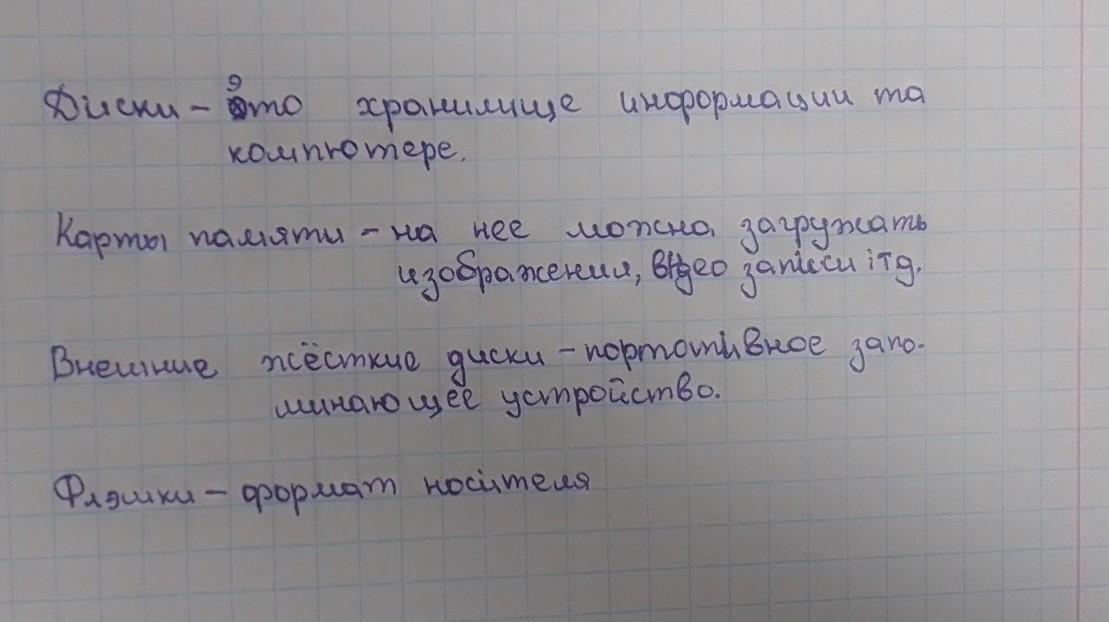 Диски - это хранилище информации та
компютере.
Карты памяти - на нее можна загружать
изображения, видео записси ітд.
Внешние жёсткие диски - портотівное запо-
минающее устройство.
Флэшки - формат носітеля